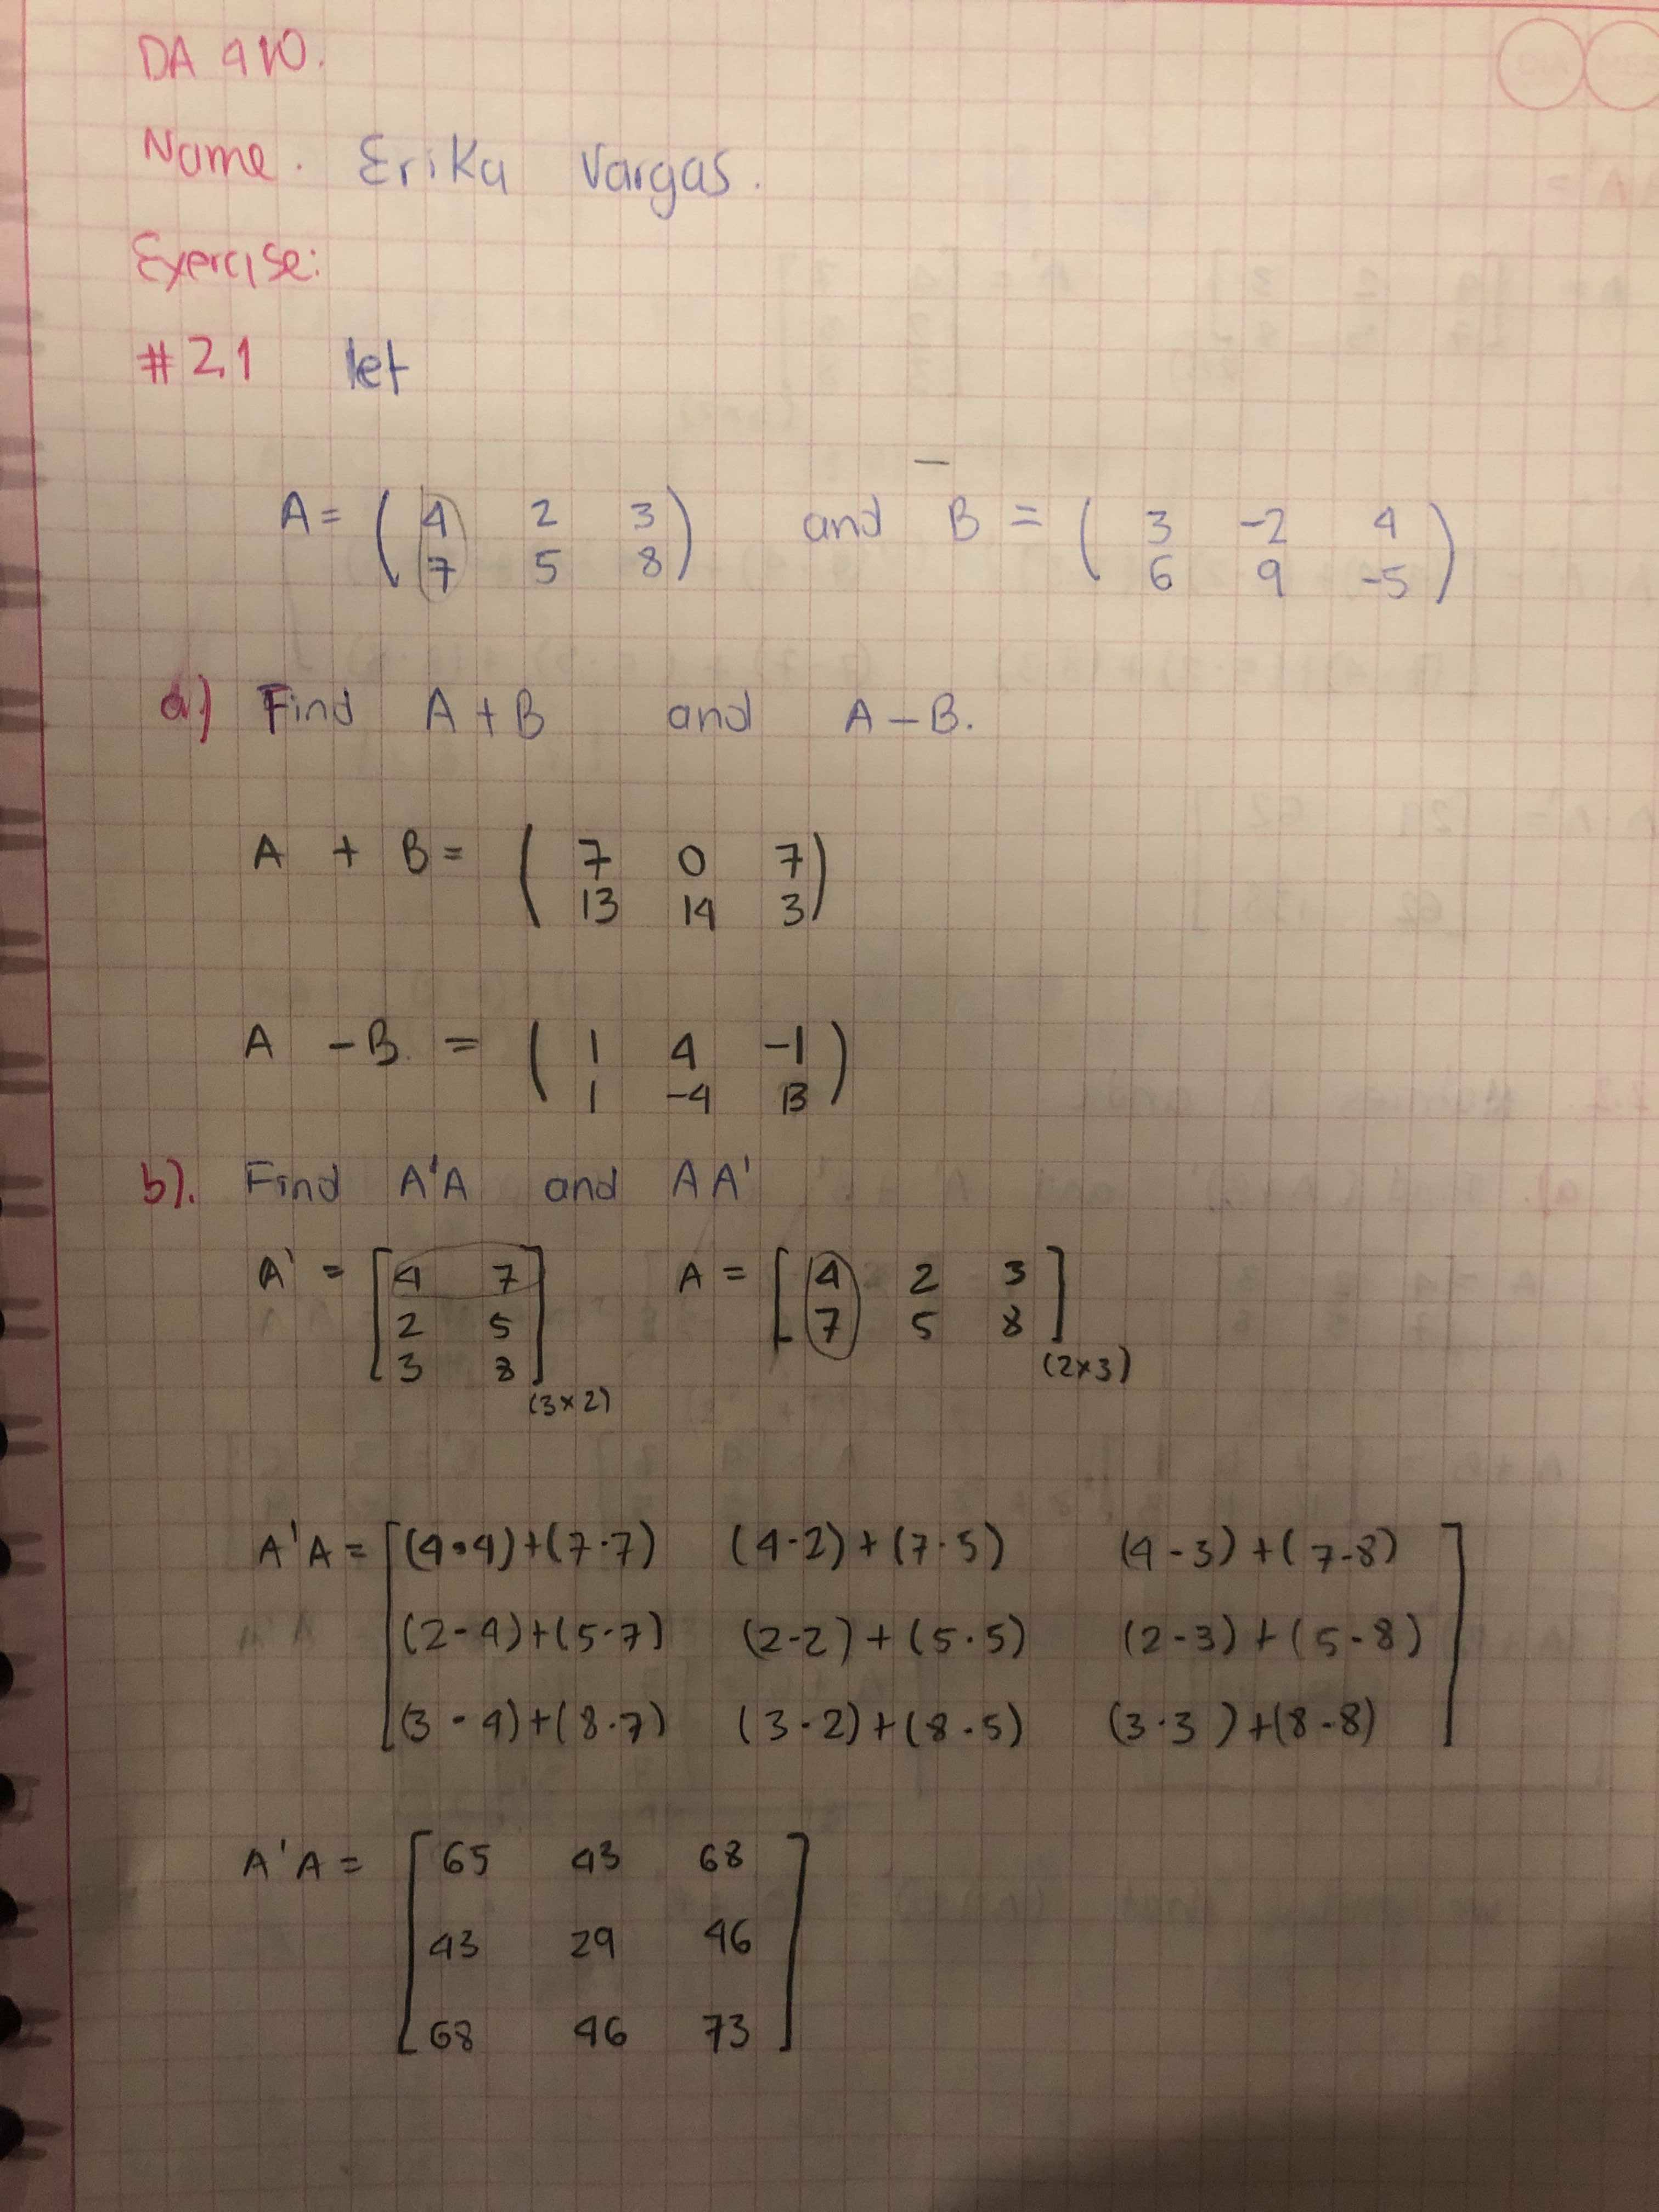 DA 410.
Name. Erika Vargas.
Exercise:
#2.1 let
A = ( 4 2 3 ) and B = ( 3 -2 4 )
7 5 8 6 9 -5
a) Find A + B and A - B.
A + B = ( 7 0 7 )
13 14 3
A - B. = ( 1 4 -1 )
1 -4 13
b). Find A'A and AA'
A' = [ 4 7 ] A = [ 4 2 3 ]
2 5 7 5 8
3 8 (2x3)
(3x2)
A'A = [ (4·4)+(7·7) (4·2)+(7·5) (4·3)+(7·8) ]
(2·4)+(5·7) (2·2)+(5·5) (2·3)+(5·8)
(3·4)+(8·7) (3·2)+(8·5) (3·3)+(8·8)
A'A = [ 65 43 68 ]
43 29 46
68 46 73